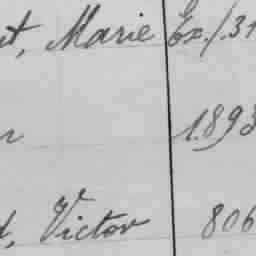 t, Marie Ex./.31
1.893
, Victor 806